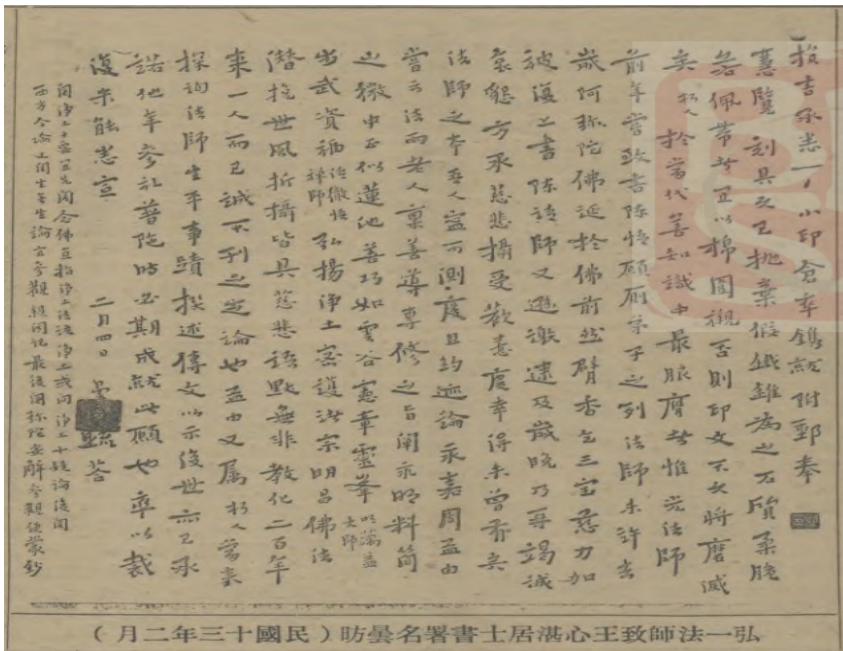 損書承悉一一小印倉卒鐫就附郵奉
慧覽刻具久已拋棄假鐵錐為之石質柔脆
若佩帶者宜以棉圍襯否則印文不久將磨滅
矣朽人於當代善知識中最服膺者惟光法師
前年嘗致書陳情願廁弟子之列法師未許去
歲阿彌陀佛誕於佛前然臂香乞三寶慈力加
被復上書陳請師又遜謝逮及歲晚乃再竭誠
哀懇方承慈悲攝受歡喜慶幸得未曾有矣
法師之本吾人寧可測度且約迹論永嘉周孟由
嘗云法雨老人稟善導專修之旨闡永明料簡
之微中正似蓮池善巧如雲谷憲章靈峯明蕅益大師
步武資福清徹悟禪師弘揚淨土密護諸宗明昌佛法
潛挽世風折攝皆具慈悲語默無非教化二百年
來一人而已誠不刊之定論也孟由又屬朽人當來
探詢法師生平事蹟撰述傳文以示後世亦已承
諾他年參禮普陀時必期成就此願也率以裁
復未能悉宣 二月四日 曇昉疏答
閱淨土十要宜先閱念佛直指淨土法語淨土或問淨土十疑論後閱
西方合論 生論宜參觀親聞記最後閱彌陀要解參觀便蒙鈔
弘一法師致王心湛居士書署名曇昉(民國十三年二月)